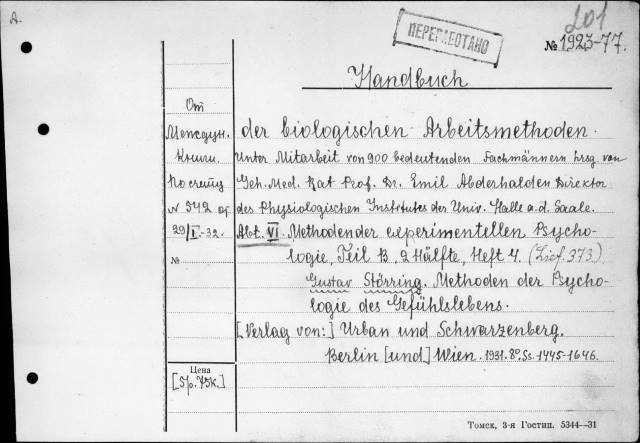 A.
ПЕРЕРАБОТАНО
201
№ 1923-77.
Handbuch
От
Междун.
Книги.
По счету
№ 542 от
29/I-32.
№
der biologischen Arbeitsmethoden.
Unter Mitarbeit von 900 bedeutenden Fachmännern hrsg. von
Geh. Med. Rat Prof. Dr. Emil Abderhalden Direktor
des Physiologischen Institutes der Univ. Halle a.d. Saale.
Abt. VI. Methoden der experimentellen Psycho-
logie, Teil B, 2 Hälfte, Heft 4. (Lief. 373).
Gustav Störring. Methoden der Psycho-
logie des Gefühlslebens.
[Verlag von:] Urban und Schwarzenberg.
Berlin [und] Wien. 1931. 8º. Ss. 1445-1646.
Цена
[5р. 75к.]
Томск, 3-я Гостип. 5344—31